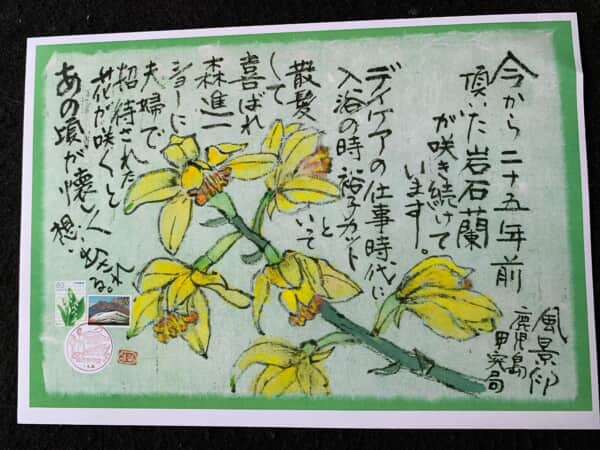 今から二十五年前
頂いた岩石蘭
が咲き続けて
います。
デイケアの仕事時代に
入浴の時裕子カット
と
いって
散髪
して
喜ばれ
森進一
ショーに
夫婦で
招待された
花が咲くと
あの頃が懐しく
想
れる。
風景印
鹿児島
甲突局